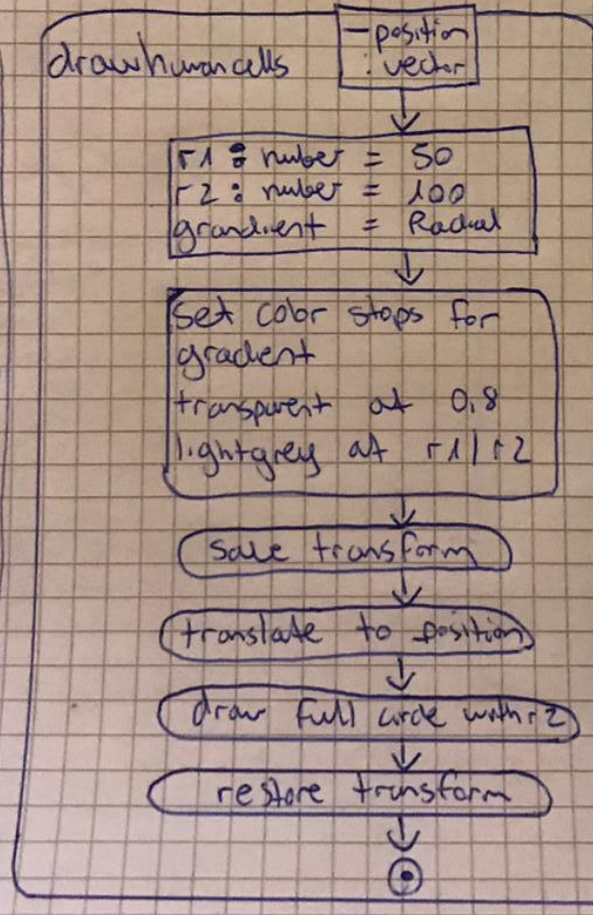 drawhumancells
- position
: vector
r1 : number = 50
r2 : number = 100
grandient = Radial
set color stops for
gradient
transparent at 0,8
lightgrey at r1/r2
save transform
translate to position
draw full circle with r2
restore transform